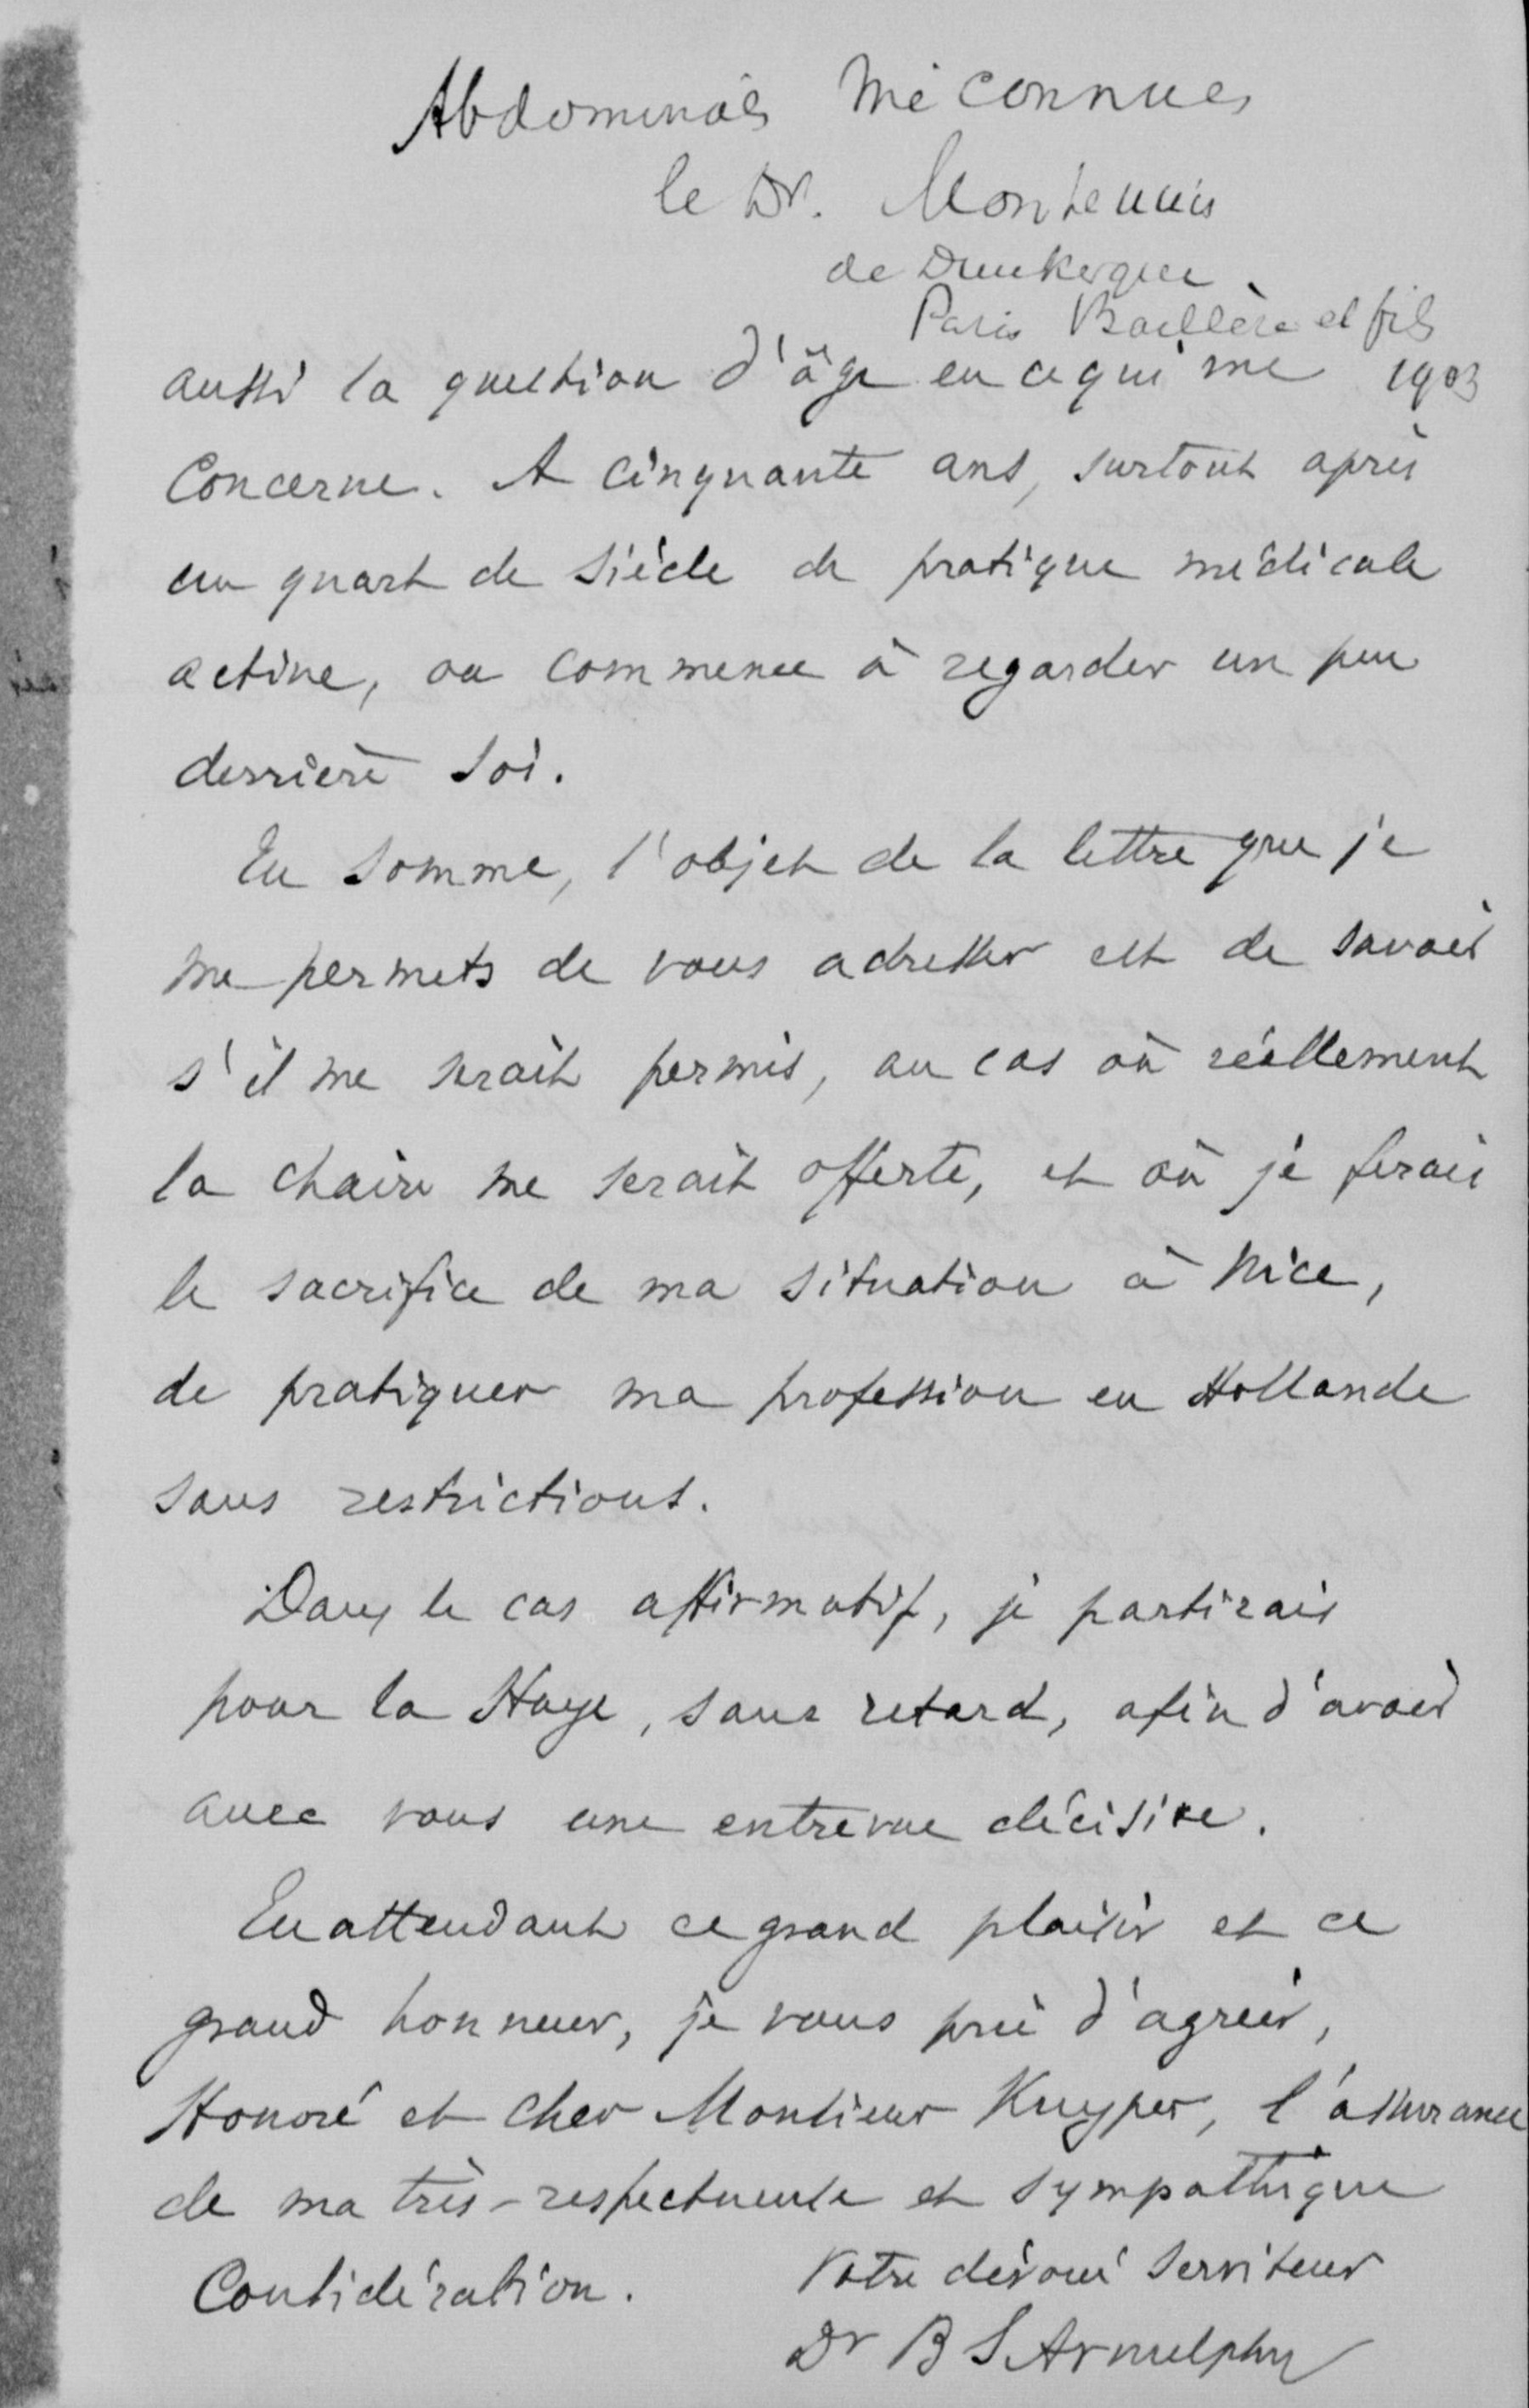 Abdominales méconnues
le Dr. Monteuuis
de Dunkerque.
Paris Baillère et fils
1903
aussi la question d'âge en ce qui me
concerne. A cinquante ans, surtout après
un quart de siècle de pratique médicale
active, on commence à regarder un peu
derrière soi.
En somme, l'objet de la lettre que je
me permets de vous adresser est de savoir
s'il me serait permis, au cas où réellement
la chaire me serait offerte, et où je ferais
le sacrifice de ma situation à Nice,
de pratiquer ma profession en Hollande
sans restrictions.
Dans le cas affirmatif, je partirais
pour la Haye, sans retard, afin d'avoir
avec vous une entrevue décisive.
En attendant ce grand plaisir et ce
grand honneur, je vous prie d'agréer,
Honoré et cher Monsieur Kuyper, l'assurance
de ma très-respectueuse et sympathique
Considération.
Votre dévoué serviteur
Dr B S Arnulphy